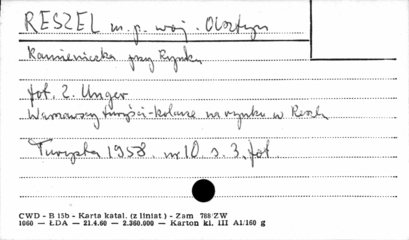 RESZEL m. p. woj. Olsztyn
Kamieniczka przy Rynku
fot. Z. Unger
Warszawscy turyści-kolarze na rynku w Reszlu
Turysta 1958 nr 10 s. 3, fot.
CWD - B 15b - Karta katal. (z liniat) - Zam 768/ZW
1060 — ŁDA — 21.4.60 — 2.360.000 — Karton kl. III A1/160 g